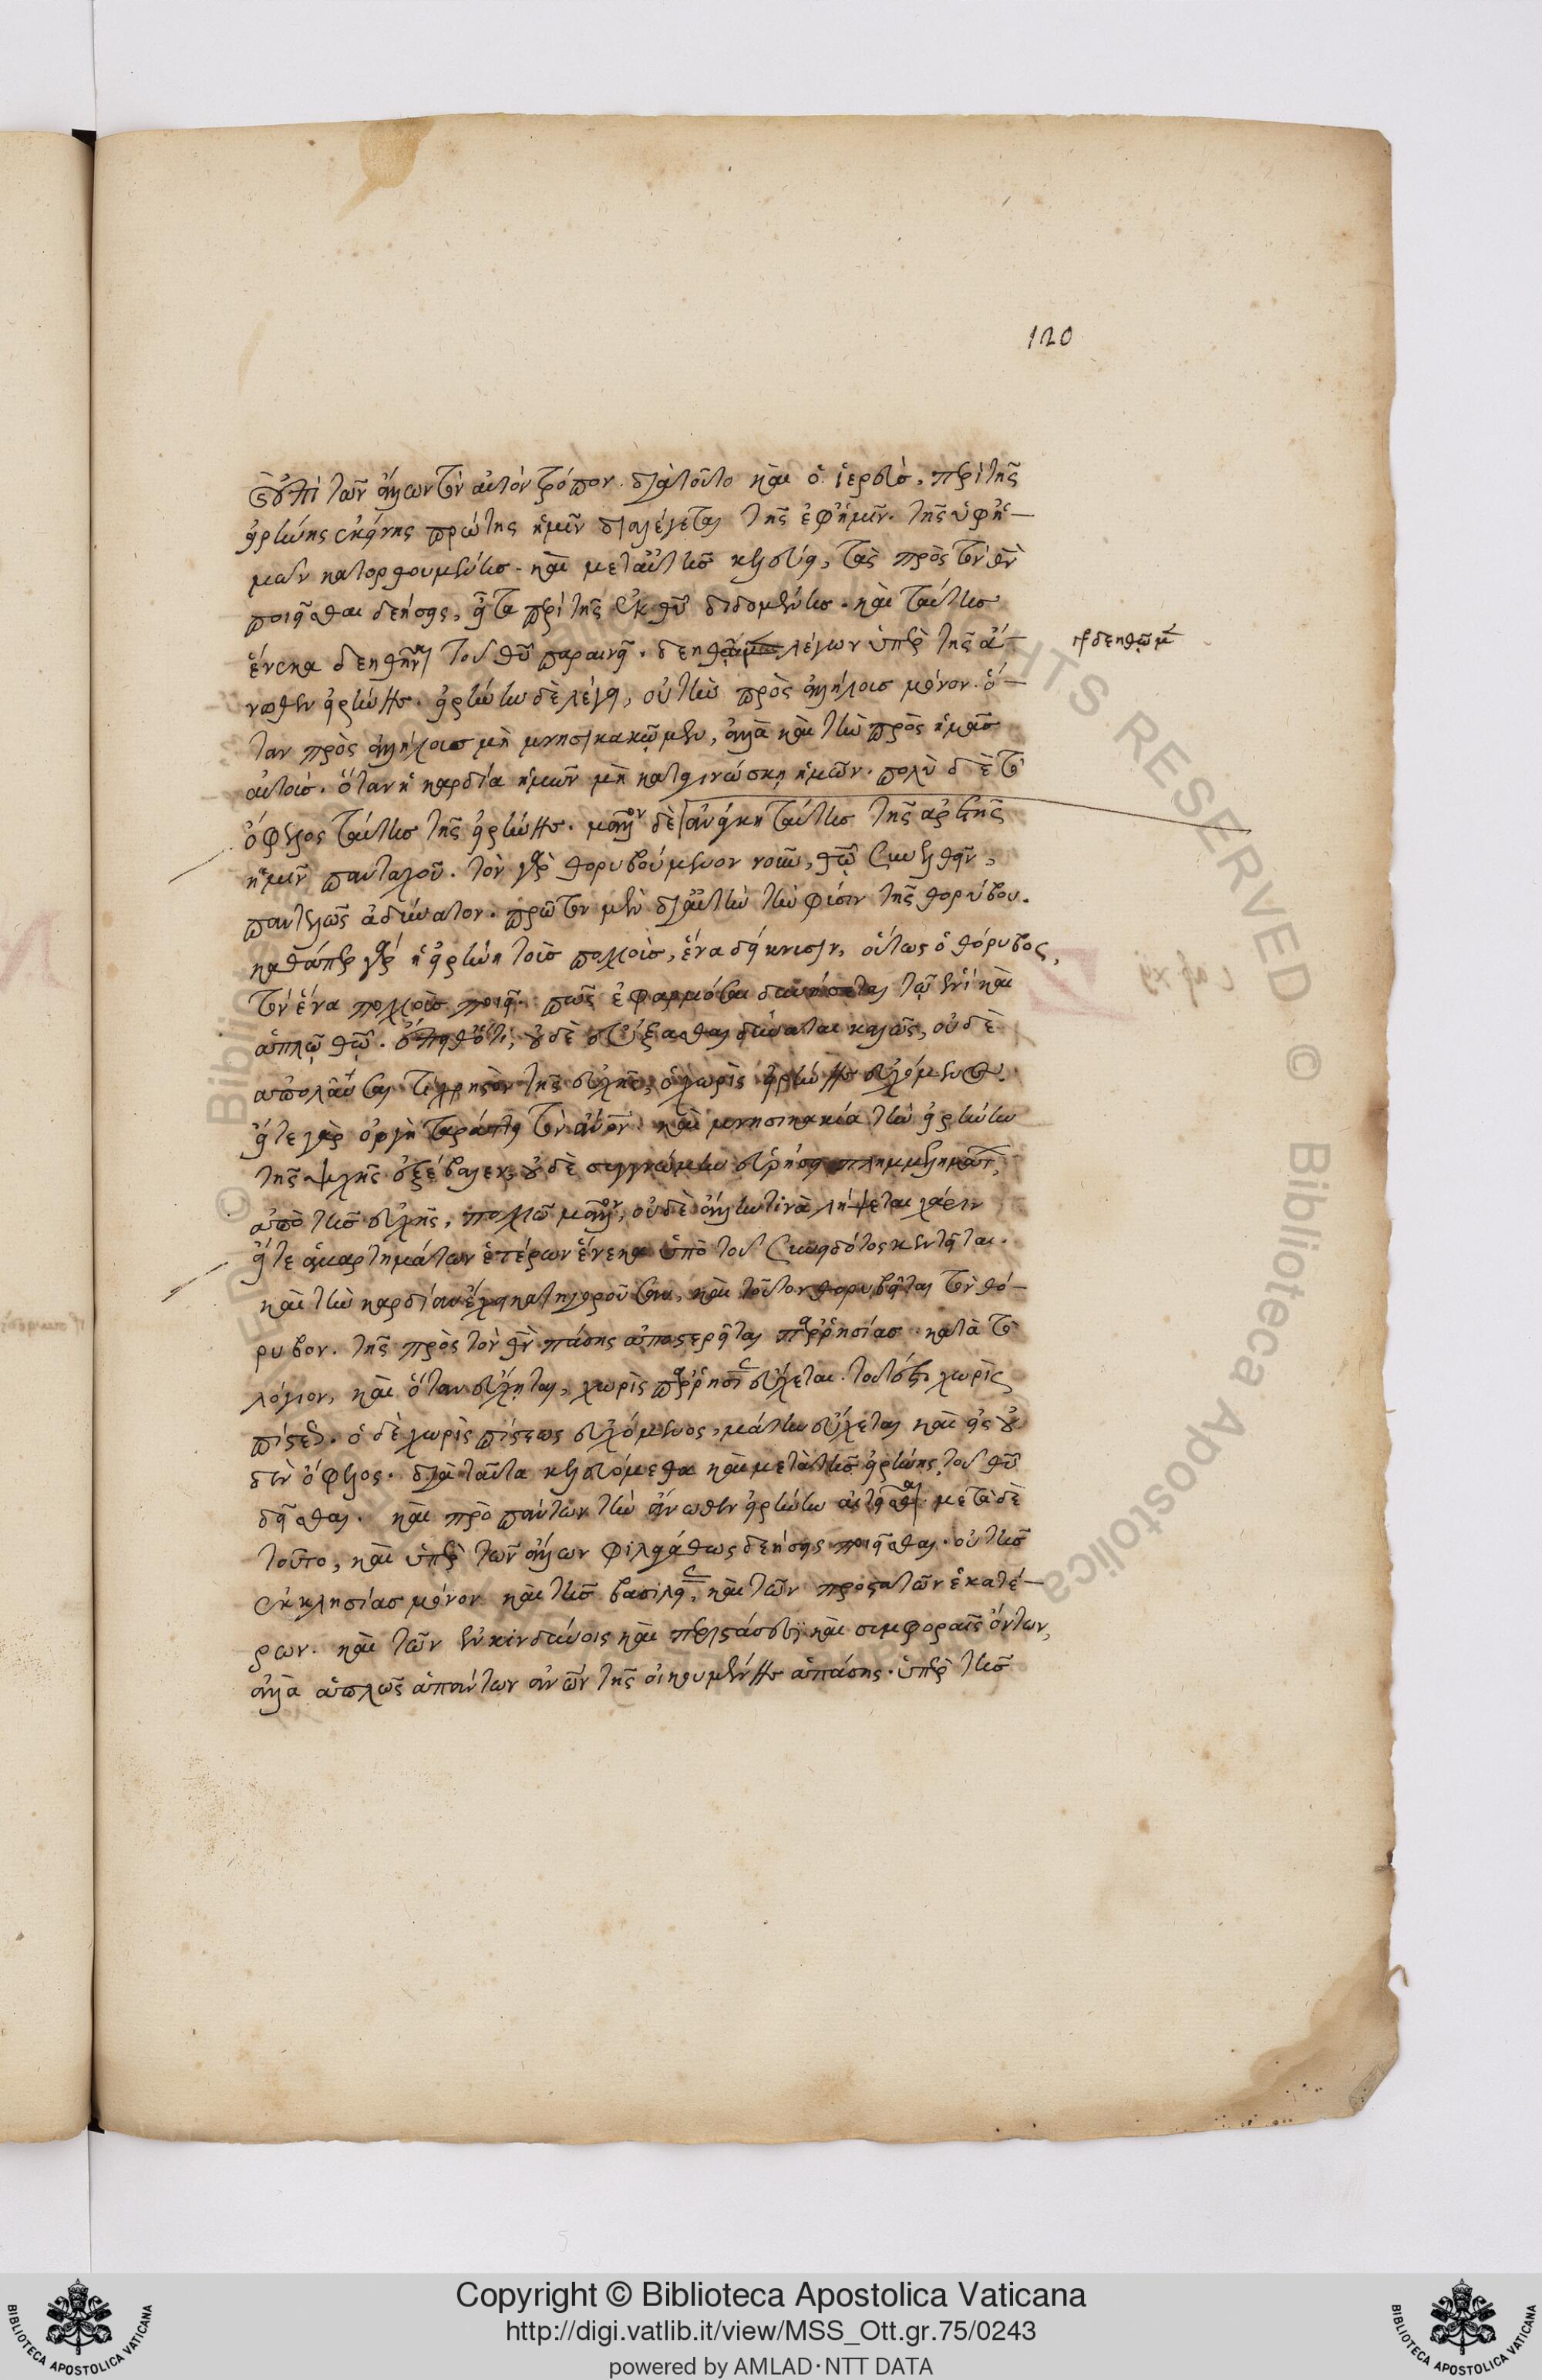 120
ἐπὶ τῶν ἄλλων τὸν αὐτὸν τρόπον. διὰ τοῦτο καὶ ὁ ἱερεὺς, περὶ τῆς
εἰρήνης ἐκείνης πρώτης ἡμῖν διαλέγεται τῆς ἐφ' ἡμῖν. τῆς ὑφ' ἡ-
μῶν κατορθουμένης. καὶ μετ' αὐτῆς κελεύει, τὰς πρὸς τὸν θν
ποιεῖσθαι δεήσεις, εἶτα περὶ τῆς ἐκ θυ διδομένης. καὶ ταύτης
ἕνεκα δεηθῆναι τοῦ θυ παραινεῖ. δεηθῶμεν λέγων ὑπὲρ τῆς ἄ-
δεηθῶμεν
νωθεν εἰρήνης. εἰρήνην δὲ λέγει, οὐ τὴν πρὸς ἀλλήλους μόνον. ὅ-
ταν πρὸς ἀλλήλους μὴ μνησικακῶμεν, ἀλλὰ καὶ τὴν πρὸς ἡμᾶς
αὐτούς. ὅταν ἡ καρδία ἡμῶν μὴ καταγινώσκῃ ἡμῶν. πολὺ δὲ τὸ
ὄφελος ταύτης τῆς εἰρήνης. μᾶλλον δὲ ἀνάγκη ταύτης τῆς ἀρετῆς
ἡμῖν πανταχοῦ. τὸν γὰρ θορυβούμενον νοῦν, θῶ ἐνωθῆναι,
παντελῶς ἀδύνατον. πρῶτον μὲν δι' αὐτὴν τὴν φύσιν τῆς θορύβου.
καθάπερ γὰρ ἡ εἰρήνη τοὺς πολλοὺς, ἕνα δείκνυσιν, οὕτως ὁ θόρυβος,
τὸν ἕνα πολλοὺς ποιεῖ. πῶς ἐφαρμόσαι δυνήσεται τῷ ἑνὶ καὶ
ἁπλῷ θῶ. ἔπειθ' ὅτι, οὐδὲ εὔξασθαι δύναται καλῶς, οὐδὲ
ἀπολαῦσαι τι χρηστὸν τῆς εὐχῆς, ὁ χωρὶς εἰρήνης εὐχόμενος.
εἴτε γὰρ ὀργὴ ταράττει τὸν ἄνον. καὶ μνησικακία τὴν εἰρήνην
τῆς ψυχῆς ἐξέβαλεν, οὐδὲ συγγνώμην εὑρήσει πλημμελημάτων,
ἀπὸ τῆς εὐχῆς, πολλῷ μᾶλλον, οὐδὲ ἄλλην τινὰ λήψεται χάριν
εἴτε ἁμαρτημάτων ἑτέρων ἕνεκα ὑπὸ τοῦ συνειδότος κεντεῖται.
καὶ τὴν καρδίαν ἔχει κατηγοροῦσαν, καὶ τοῦτον θορυβεῖται τὸν θό-
ρυβον. τῆς πρὸς τὸν θν πάσης ἀποστερεῖται παρρησίας. κατὰ τὸ
λόγιον, καὶ ὅταν εὔχηται, χωρὶς παρρησίας εὔχεται. τουτέστι χωρὶς
πίστεως. ὁ δὲ χωρὶς πίστεως εὐχόμενος, μάτην εὔχεται καὶ εἰς οὐ
δὲν ὄφελος. διὰ ταῦτα κελευόμεθα καὶ μετὰ τῆς εἰρήνης τοῦ θυ
δεῖσθαι. καὶ πρὸ πάντων τὴν ἄνωθεν εἰρήνην αἰτεῖσθαι. μετὰ δὲ
τοῦτο, καὶ ὑπὲρ τῶν ἄλλων φιλαγάθως δεήσεις ποιεῖσθαι. οὐ τῆς
ἐκκλησίας μόνον καὶ τῆς βασιλείας, καὶ τῶν προστατῶν ἑκατέ-
ρων. καὶ τῶν ἐν κινδύνοις καὶ περιστάσεσι καὶ συμφοραῖς ὄντων,
ἀλλὰ ἁπλῶς ἁπάντων ἀνῶν τῆς οἰκουμένης ἁπάσης. ὑπὲρ τῆς
© Biblioteca Apostolica Vaticana
ALL RIGHTS RESERVED
Copyright © Biblioteca Apostolica Vaticana
http://digi.vatlib.it/view/MSS_Ott.gr.75/0243
powered by AMLAD·NTT DATA
BIBLIOTECA APOSTOLICA VATICANA
BIBLIOTECA APOSTOLICA VATICANA